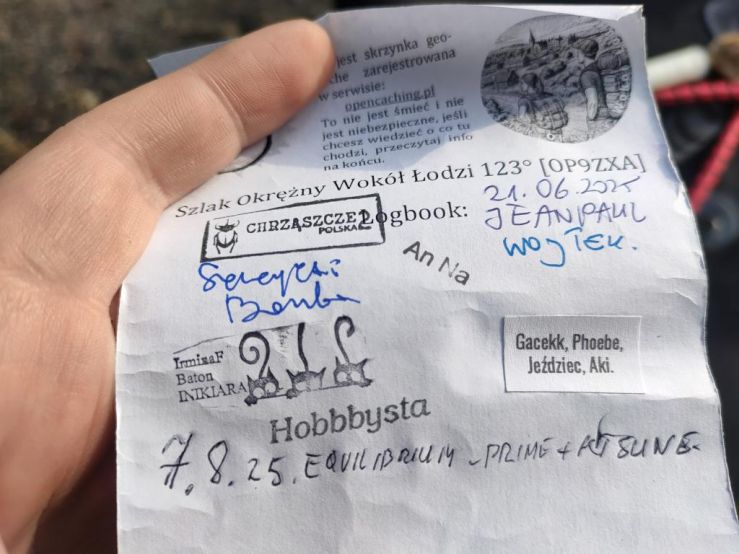 jest skrzynka geo-
che zarejestrowana
w serwisie:
opencaching.pl
To nie jest śmieć i nie
jest niebezpieczne, jeśli
chcesz wiedzieć o co tu
chodzi, przeczytaj info
na końcu.
Szlak Okrężny Wokół Łodzi 123° [OP9ZXA]
Logbook:
21.06.2025
JEANPAUL
WOJTEK.
CHRZĄSZCZE2
POLSKA
An Na
IrminaF
Baton
INIKIARA
Gacekk, Phoebe,
Jeździec, Aki.
Hobbbysta
7.8.25. EQUILIBRIUM-PRIME +